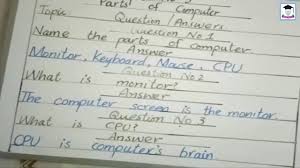 Parts of Computer
Topic Question/Answers
Question No 1
Name the parts of computer
Answer
Monitor, Keyboard, Mouse, CPU
Question No 2
What is monitor?
Answer
The computer screen is the monitor.
Question No 3
What is CPU?
Answer
CPU is computer's brain